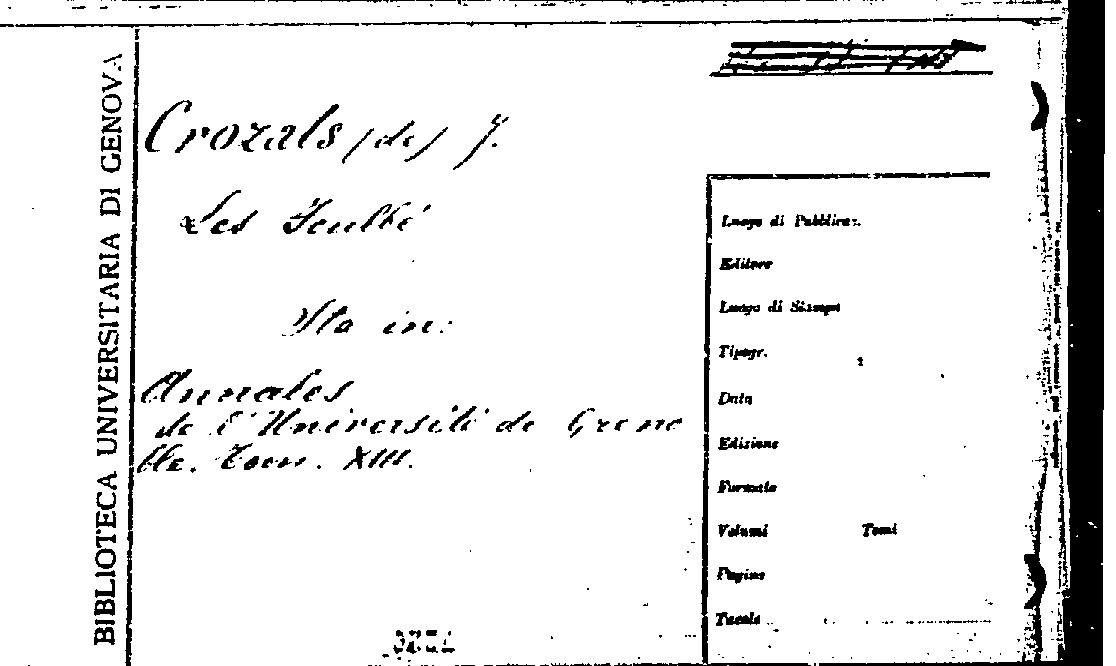 BIBLIOTECA UNIVERSITARIA DI GENOVA
Crozals (de) J.
Les Feulbé
Sta in:
Annales
de l'Université de Greno
ble. Tom. XIII.
Luogo di Pubblicaz.
Editore
Luogo di Stampa
Tipogr.
Data
Edizione
Formato
Volumi Tomi
Pagine
Tavole